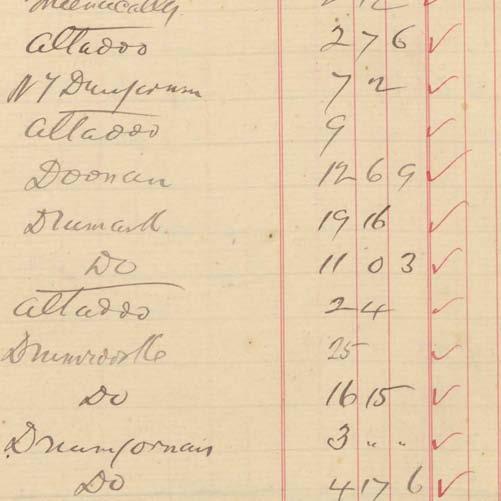 Altadoo 2 7 6 ✓
7 2 ✓
Altadoo 9 ✓
Doonan 12 6 9 ✓
Drumark 19 16 ✓
Do 11 0 3 ✓
Altadoo 2 4 ✓
25 ✓
Do 16 15 ✓
3 " " ✓
Do 4 17 6 ✓